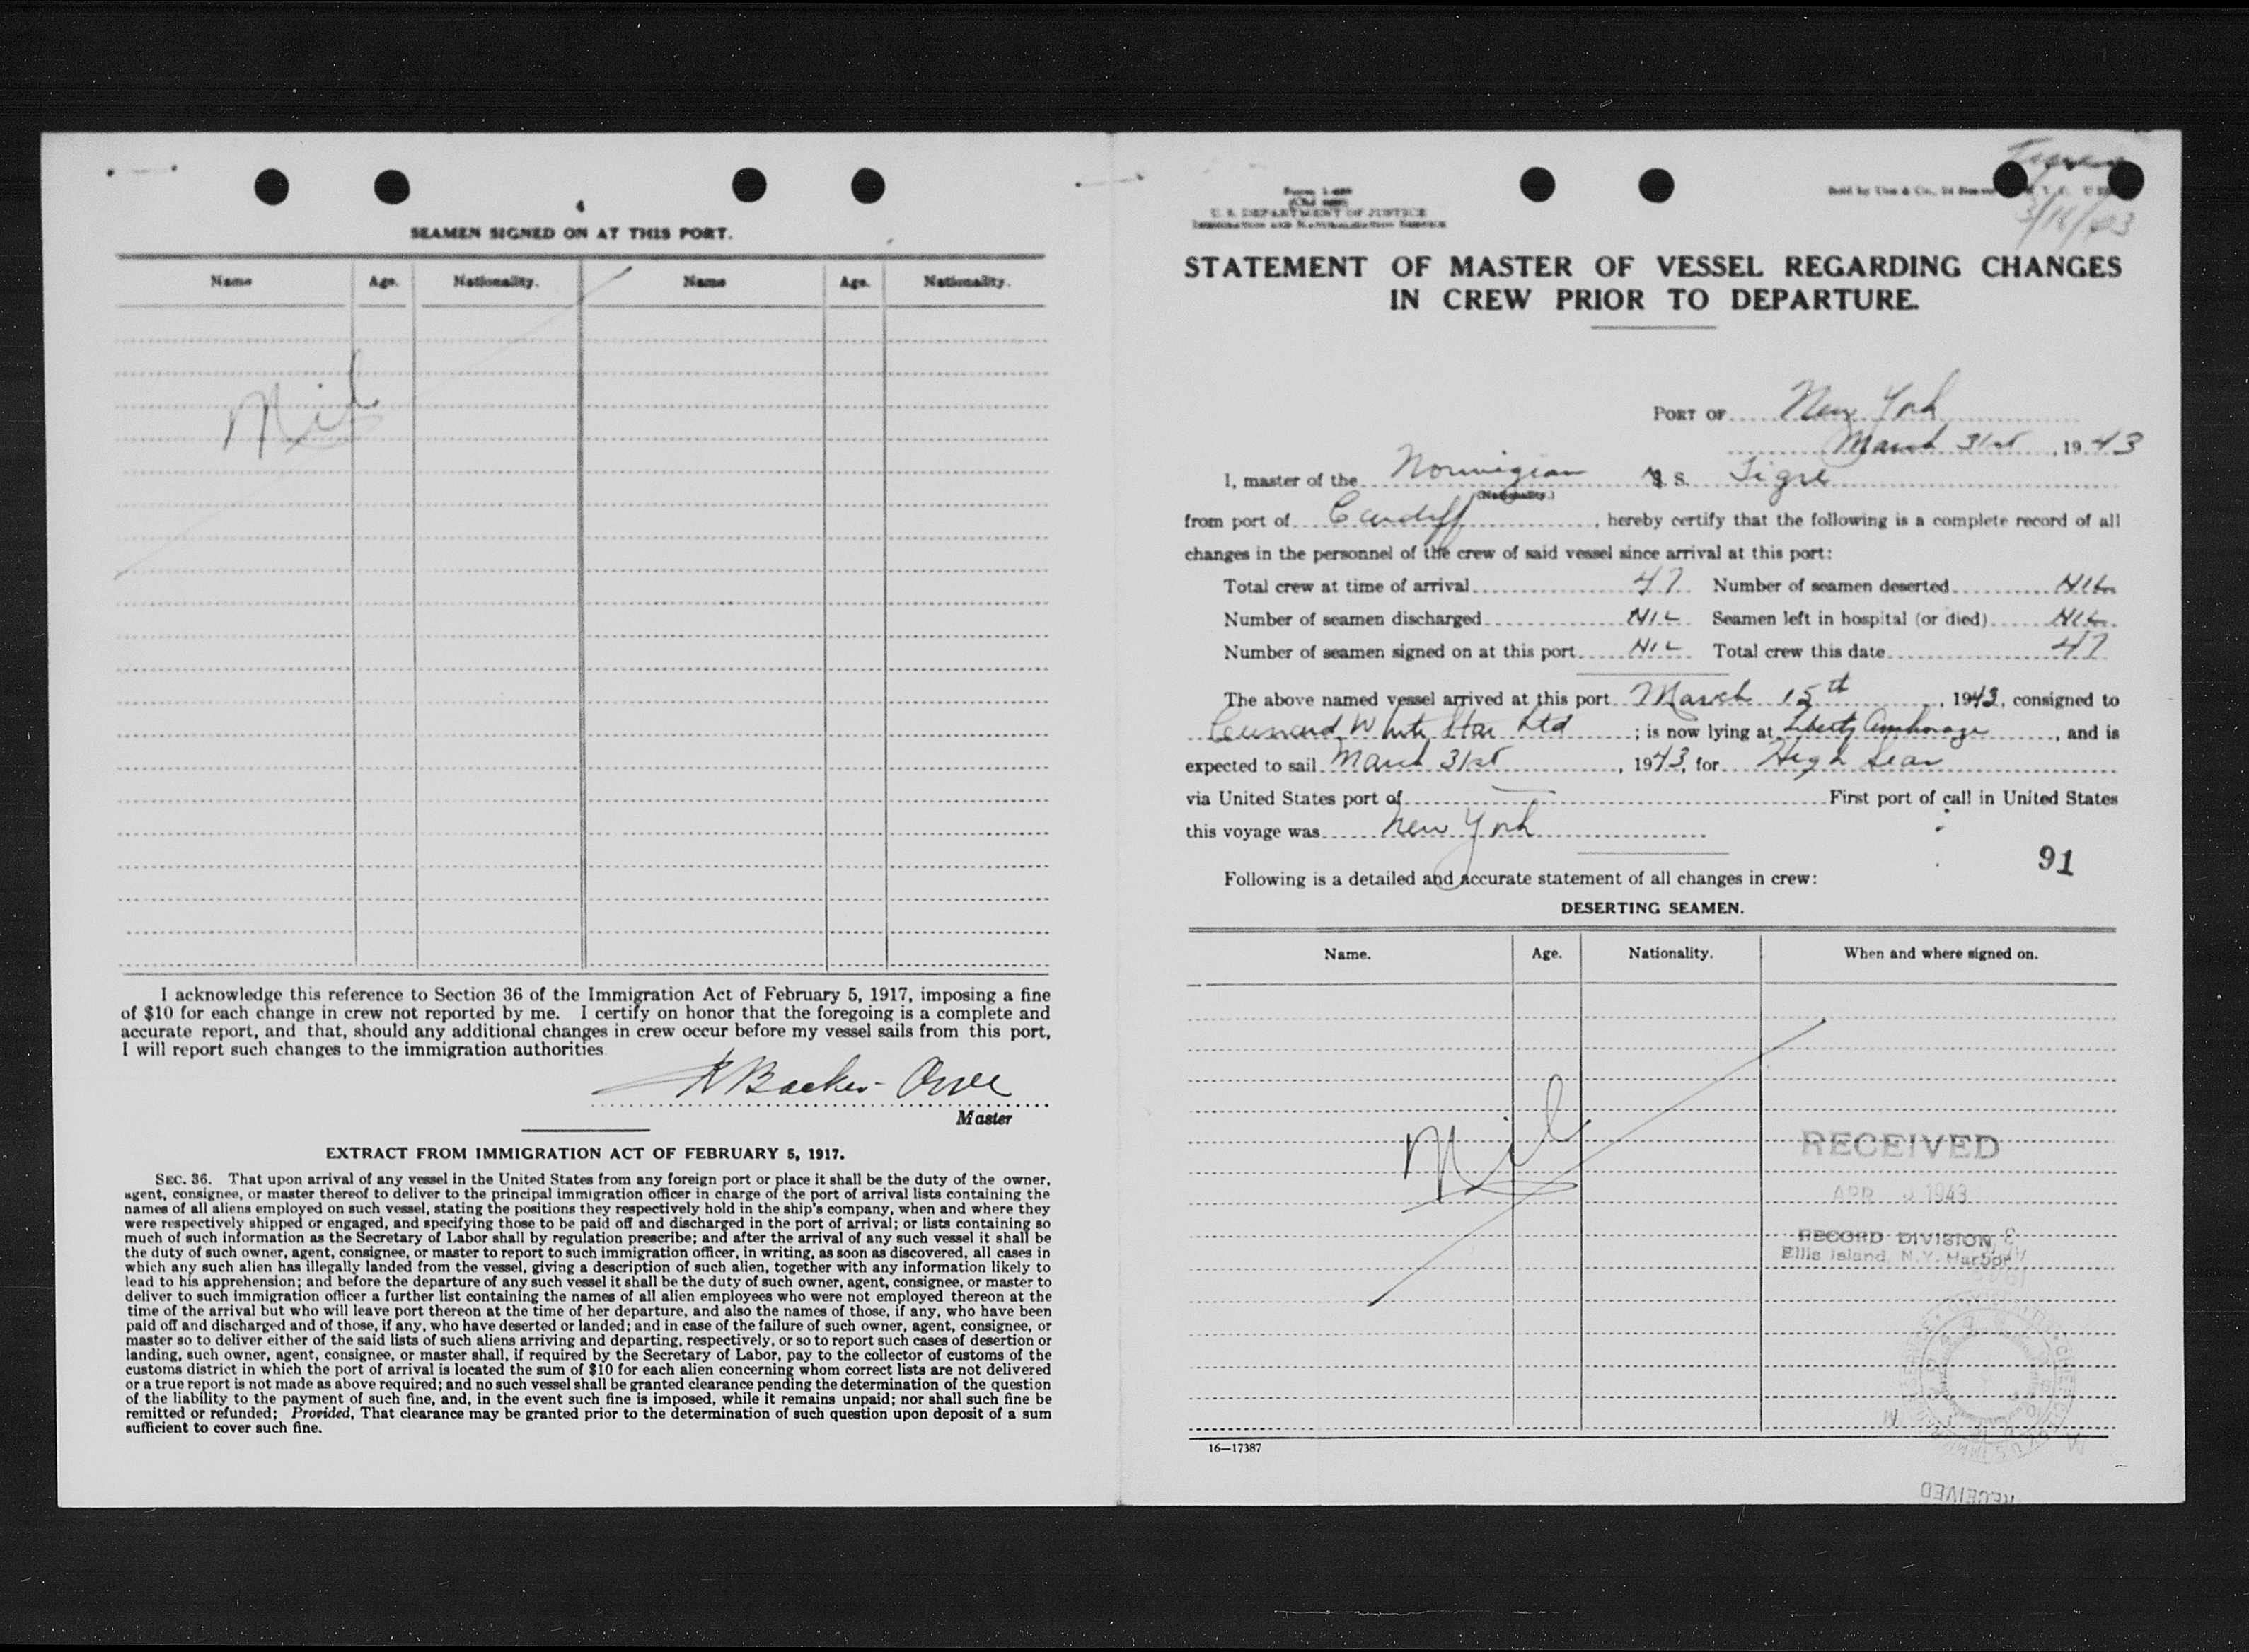 4
SEAMEN SIGNED ON AT THIS PORT.
Name Age. Nationality. Name Age. Nationality.
Nil
I acknowledge this reference to Section 36 of the Immigration Act of February 5, 1917, imposing a fine
of $10 for each change in crew not reported by me. I certify on honor that the foregoing is a complete and
accurate report, and that, should any additional changes in crew occur before my vessel sails from this port,
I will report such changes to the immigration authorities
Backer-Owe
Master
EXTRACT FROM IMMIGRATION ACT OF FEBRUARY 5, 1917.
SEC. 36. That upon arrival of any vessel in the United States from any foreign port or place it shall be the duty of the owner,
agent, consignee, or master thereof to deliver to the principal immigration officer in charge of the port of arrival lists containing the
names of all aliens employed on such vessel, stating the positions they respectively hold in the ship's company, when and where they
were respectively shipped or engaged, and specifying those to be paid off and discharged in the port of arrival; or lists containing so
much of such information as the Secretary of Labor shall by regulation prescribe; and after the arrival of any such vessel it shall be
the duty of such owner, agent, consignee, or master to report to such immigration officer, in writing, as soon as discovered, all cases in
which any such alien has illegally landed from the vessel, giving a description of such alien, together with any information likely to
lead to his apprehension; and before the departure of any such vessel it shall be the duty of such owner, agent, consignee, or master to
deliver to such immigration officer a further list containing the names of all alien employees who were not employed thereon at the
time of the arrival but who will leave port thereon at the time of her departure, and also the names of those, if any, who have been
paid off and discharged and of those, if any, who have deserted or landed; and in case of the failure of such owner, agent, consignee, or
master so to deliver either of the said lists of such aliens arriving and departing, respectively, or so to report such cases of desertion or
landing, such owner, agent, consignee, or master shall, if required by the Secretary of Labor, pay to the collector of customs of the
customs district in which the port of arrival is located the sum of $10 for each alien concerning whom correct lists are not delivered
or a true report is not made as above required; and no such vessel shall be granted clearance pending the determination of the question
of the liability to the payment of such fine, and, in the event such fine is imposed, while it remains unpaid; nor shall such fine be
remitted or refunded; Provided, That clearance may be granted prior to the determination of such question upon deposit of a sum
sufficient to cover such fine.
U. S. DEPARTMENT OF JUSTICE
IMMIGRATION AND NATURALIZATION SERVICE
STATEMENT OF MASTER OF VESSEL REGARDING CHANGES
IN CREW PRIOR TO DEPARTURE.
PORT OF New York
March 31st, 1943
I, master of the Norwegian S. Tigre
(Nationality.)
from port of Cardiff, hereby certify that the following is a complete record of all
changes in the personnel of the crew of said vessel since arrival at this port:
Total crew at time of arrival 47 Number of seamen deserted NIL
Number of seamen discharged NIL Seamen left in hospital (or died) NIL
Number of seamen signed on at this port NIL Total crew this date 47
The above named vessel arrived at this port March 15th, 1943, consigned to
Cunard White Star Ltd; is now lying at Liberty Anchorage, and is
expected to sail March 31st, 1943, for High Seas
via United States port of — First port of call in United States
this voyage was New York
91
Following is a detailed and accurate statement of all changes in crew:
DESERTING SEAMEN.
Name. Age. Nationality. When and where signed on.
Nil
RECEIVED
APR 1943
RECORD DIVISION
Ellis Island, N.Y. Harbor
16—17387
RECEIVED